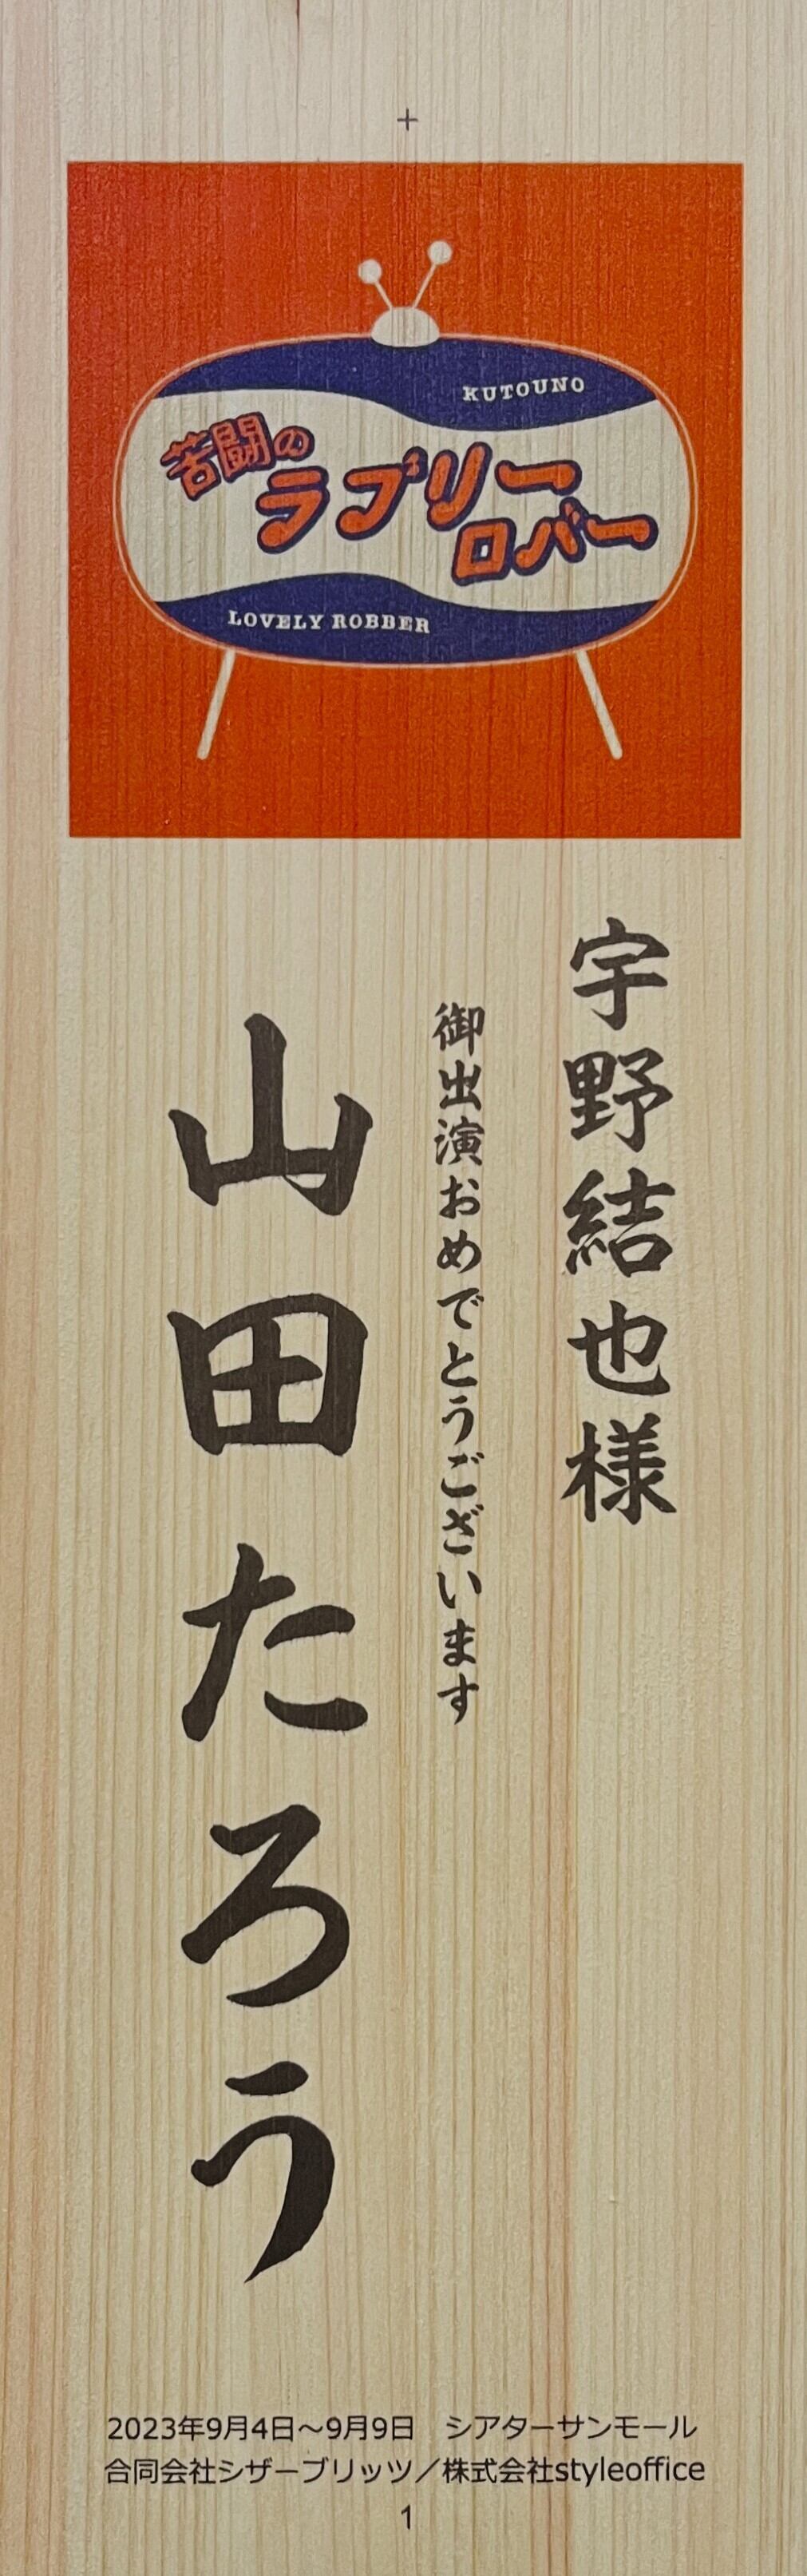 KUTOUNO
苦闘の
ラブリー
ロバー
LOVELY ROBBER
宇野結也様
御出演おめでとうございます
山田たろう
2023年9月4日～9月9日　シアターサンモール
合同会社シザーブリッツ／株式会社styleoffice
1